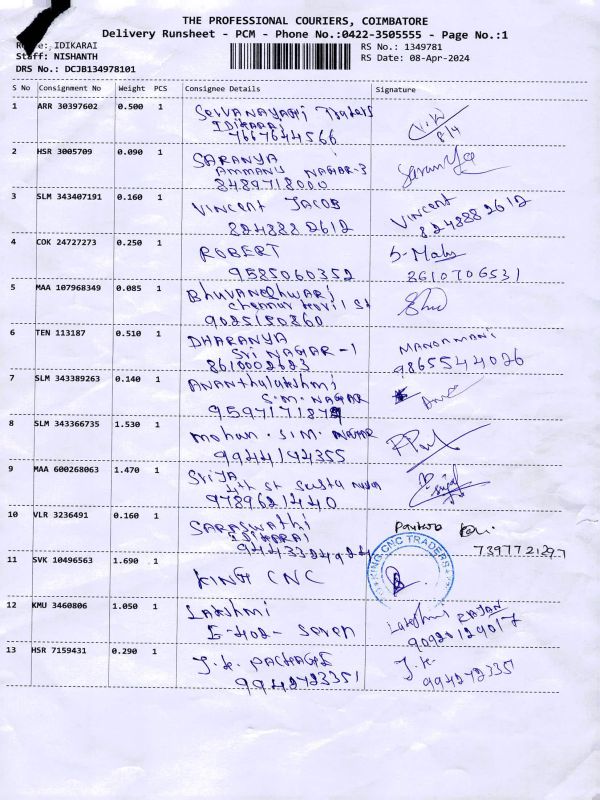 THE PROFESSIONAL COURIERS, COIMBATORE
Delivery Runsheet - PCM - Phone No.:0422-3505555 - Page No.:1
IDIKARAI RS No.: 1349781
Staff: NISHANTH RS Date: 08-Apr-2024
DRS No.: DCJB134978101
S No Consignment No Weight PCS Consignee Details Signature
1 ARR 30397602 0.500 1 Selvanayaki Traders
IDIKARAI
7667644566 8/4
2 HSR 3005709 0.090 1 SARANYA
AMMANU NAGAR-3
8489718000
3 SLM 343407191 0.160 1 VINCENT JACOB Vincent
824888 2612 824888 2612
4 COK 24727273 0.250 1 ROBERT
9585060352 8610706531
5 MAA 107968349 0.085 1 Bhuvaneshwari
9025150860
6 TEN 113187 0.510 1 DHARANYA MANOAMANI
Sri NAGAR-1 9865544026
8610002623
7 SLM 343389263 0.140 1 Ananthulakshmi
S.M. NAGAR
8 SLM 343366735 1.530 1 mohan. S.M. NAGAR
9944194355
9 MAA 600268063 1.470 1 Srija
4th St
9789621440
10 VLR 3236491 0.160 1 SARASWAthi
IDIKARAI
9443324924 7397721297
11 SVK 10496563 1.690 1 KING CNC KING CNC TRADERS
12 KMU 3460806 1.050 1 Lakshmi Lakshmi RAJAN
- Seven 90920129017
13 HSR 7159431 0.290 1 J.K. PACKAGE J.K.
9942723351 994272335